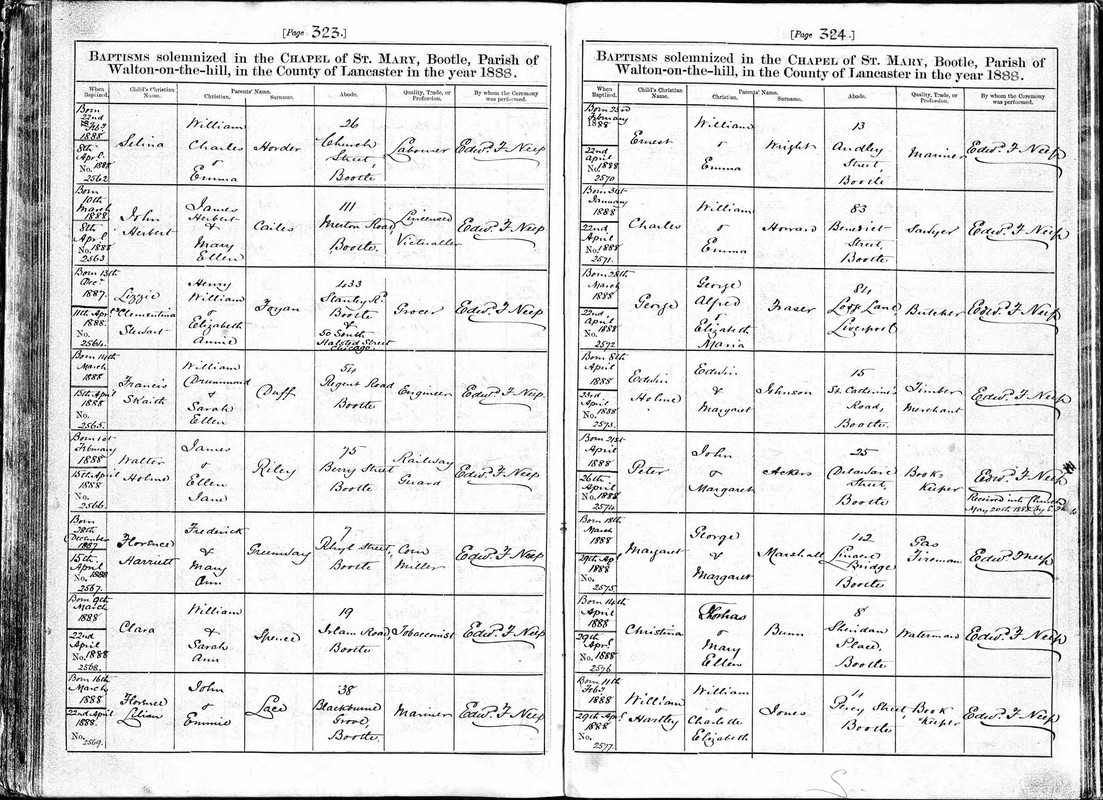 [Page 323.]
BAPTISMS solemnized in the CHAPEL of ST. MARY, Bootle, Parish of
Walton-on-the-hill, in the County of Lancaster in the year 1888.
When Baptized. Child's Christian Name. Parents' Name. Christian. Surname. Abode. Quality, Trade, or Profession. By whom the Ceremony was performed.
Born 22nd Feby 1888
8th Apr. 1888
No. 2562
Selina
William Charles & Emma
Horder
26 Church Street, Bootle
Labourer
Edwd. F. Neep
Born 10th March 1888
8th Apr. 1888
No. 2563
John Herbert
James Herbert & Mary Ellen
Cailes
111 Merton Road Bootle.
Licensed Victualler
Edwd. F. Neep
Born 13th Decr. 1887.
11th Apr. 1888.
No. 2564.
Lizzie Clementina Stewart
Henry William & Elizabeth Annie
433 Stanley Rd. Bootle & 50 South Halsted Street Chicago.
Grocer
Edwd. F. Neep
Born 14th March 1888
15th April 1888
No. 2565.
Francis Skaith
William Drummond & Sarah Ellen
Duff
54 Regent Road Bootle
Engineer
Edwd. F. Neep
Born 1st February 1888
15th April 1888
No. 2566
Walter Holme
James & Ellen Jane
Riley
75 Berry Street Bootle
Railway Guard
Edwd. F. Neep
Born 28th December 1887
15th April 1888
No. 2567.
Florence Harriett
Frederick & Mary Ann
Greenway
7 Rhyl Street, Bootle
Corn Miller
Edwd. F. Neep
Born 9th March 1888
22nd April 1888
No. 2568.
Clara
William & Sarah Ann
Spence
19 Irlam Road, Bootle
Tobacconist
Edwd. F. Neep
Born 16th March 1888
22nd April 1888.
No. 2569.
Florence Lilian
John & Emmie
Lace
38 Blackburne Grove, Bootle.
Mariner
Edwd. F. Neep
[Page 324.]
BAPTISMS solemnized in the CHAPEL of ST. MARY, Bootle, Parish of
Walton-on-the-hill, in the County of Lancaster in the year 1888.
When Baptized. Child's Christian Name. Parents' Name. Christian. Surname. Abode. Quality, Trade, or Profession. By whom the Ceremony was performed.
Born 23rd February 1888
22nd April 1888
No. 2570
Ernest
William & Emma
Wright
13 Audley Street, Bootle
Mariner
Edwd. F. Neep
Born 31st January 1888
22nd April 1888
No. 2571.
Charles
William & Emma
Howard
83 Benedict Street, Bootle
Sawyer
Edwd. F. Neep
Born 28th March 1888
22nd April 1888
No. 2572
George
George Alfred & Elizabeth Maria
Fraser
84 Lane Liverpool
Butcher
Edwd. F. Neep
Born 8th April 1888
23rd April 1888
No. 2573.
Edwin Holme
Edwin & Margaret
Johnson
15 St. Catherine's Road, Bootle.
Timber Merchant
Edwd. F. Neep
Born 21st April 1888
26th April 1888
No. 2574.
Peter
John & Margaret
Ackers
25 Delaware Street, Bootle
Book Keeper
Edwd. F. Neep
Received into Church May 20th 1888 by
Born 18th March 1888
29th Apl. 1888
No. 2575
Margaret
George & Margaret
Marshall
42 Linacre Bridge Bootle
Gas Fireman
Edwd. F. Neep
Born 14th April 1888
29th Apr. 1888
No. 2576
Christina
Thomas & Mary Ellen
Bunn
8 Sheridan Place, Bootle
Waterman
Edwd. F. Neep
Born 11th Feby. 1888
29th Apl. 1888
No. 2577.
William Hartley
William & Charlotte Elizabeth
Jones
4 Percy Street, Bootle
Book Keeper
Edwd. F. Neep